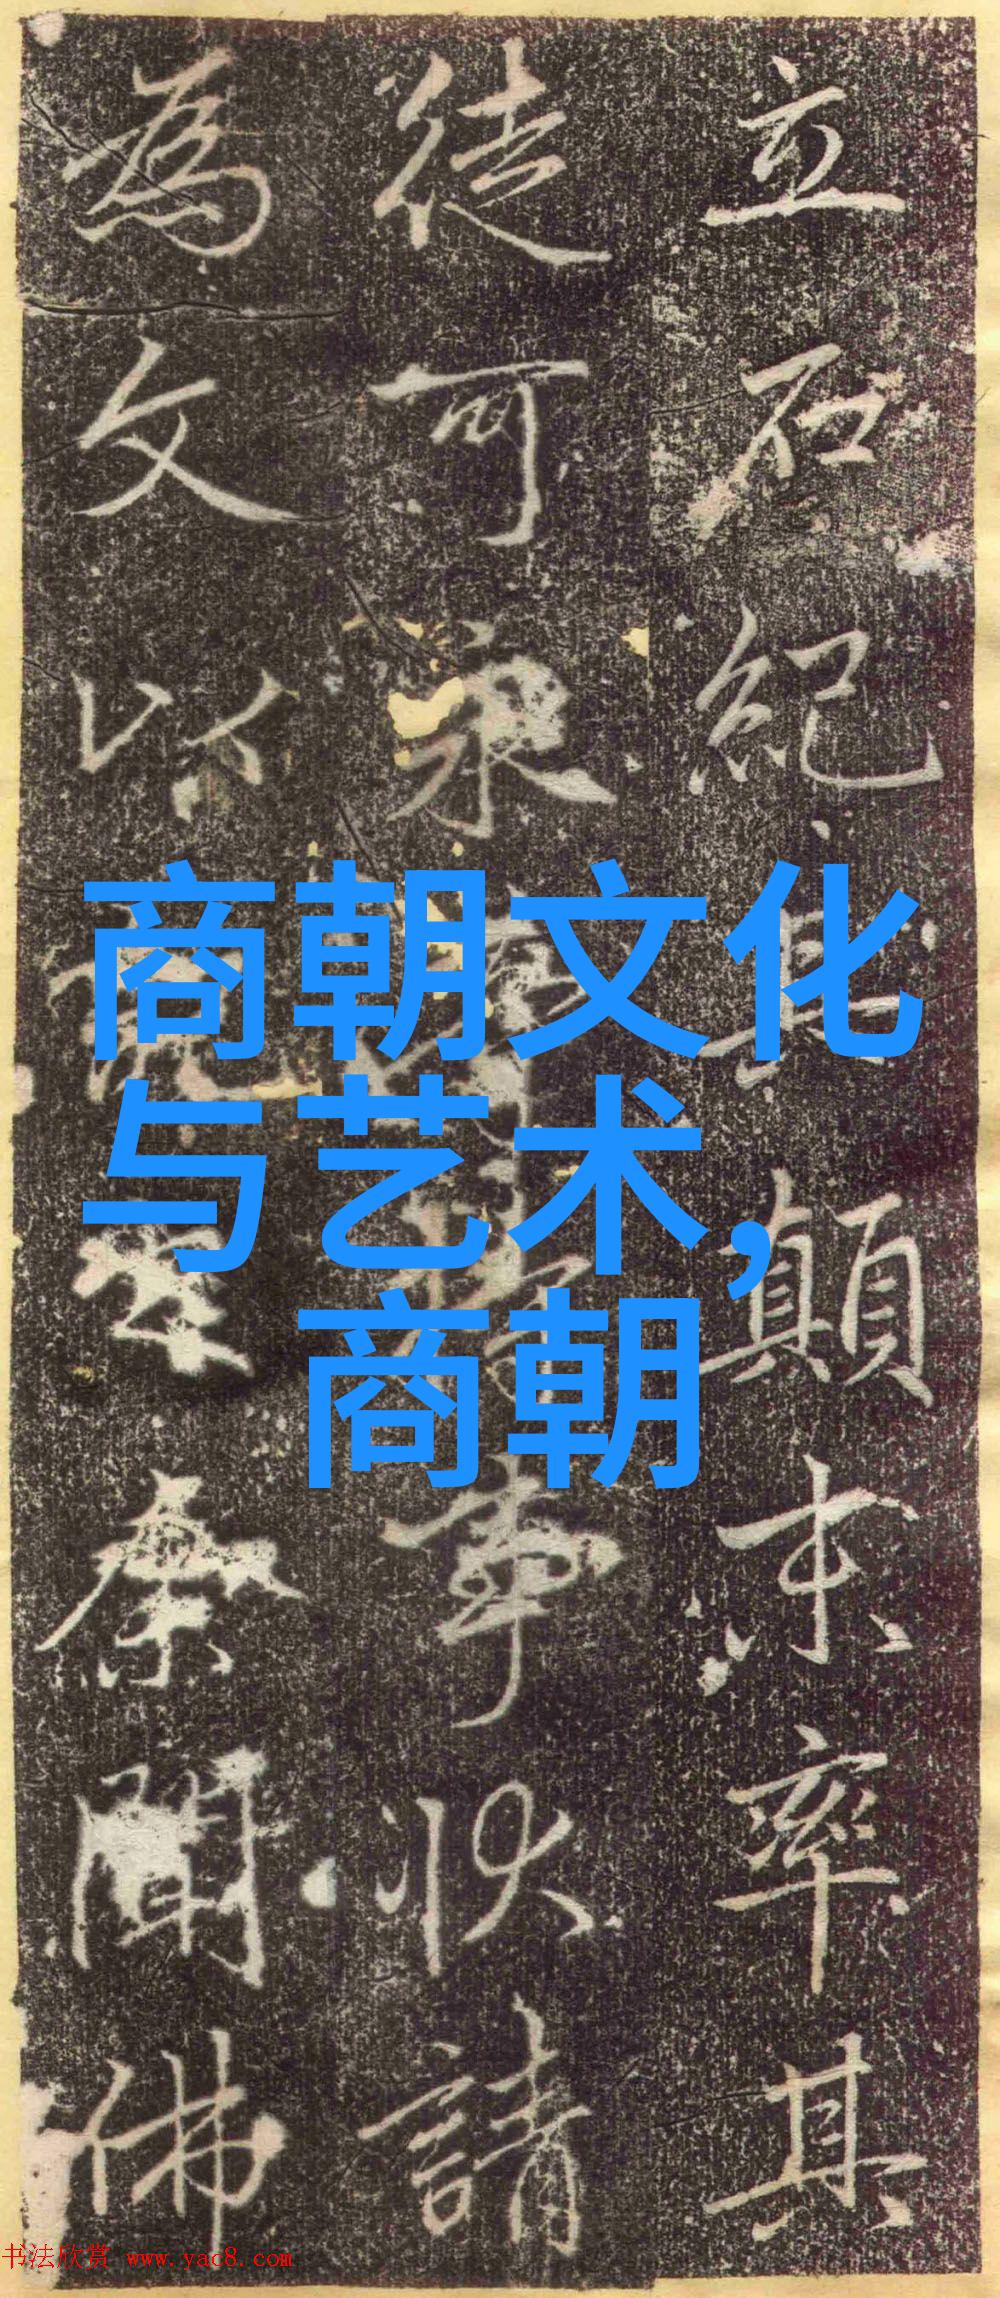 立石紀其顛末率其
徒可永事狀請
為文以余聞佛
商朝文化
与艺术，
商朝
书法欣赏 www.yac8.com